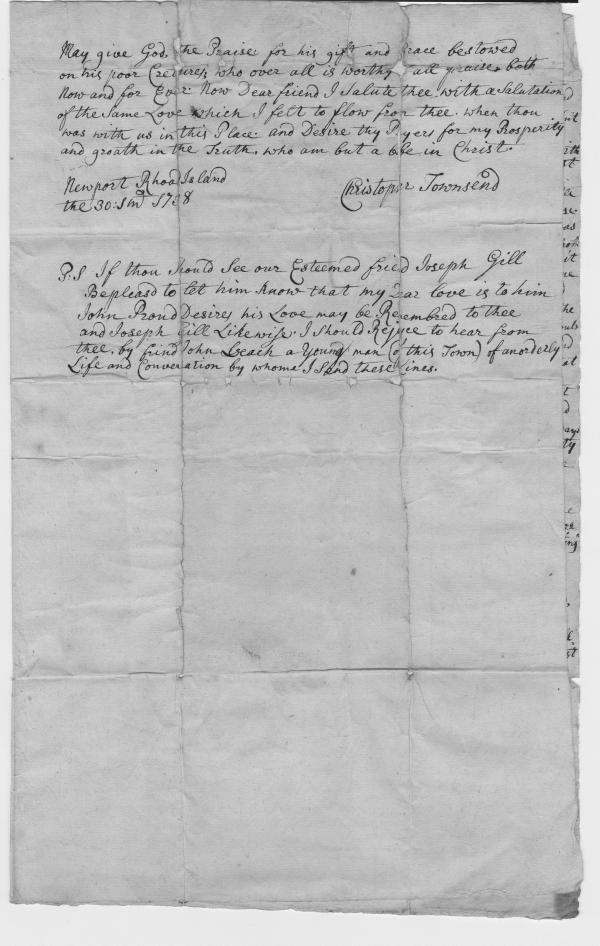 May give God, the Praise for his gift and race bestowed
on his poor Creatures who over all is worthy all praise both
Now and for Ever Now Dear friend I Salute thee with a Salutation
of the Same Love which I felt to flow from thee. when thou
was with us in this Place and Desire thy Prayers for my Prosperity
and groath in the Truth. who am but a babe in Christ.
Newport Rhoad Island
the 30: 5m
Christopher Townsend
P:S If thou should See our Esteemed friend Joseph Gill
Bepleasd to let him know that my Dear love is to him
John Proud Desires his Love may be Remembred to thee
and Joseph Gill Likewise. I Should Rejoyce to hear from
thee. by frind John Leach a Young man (of this Town) of an orderly
Life and Converation by whome I Send these Lines.